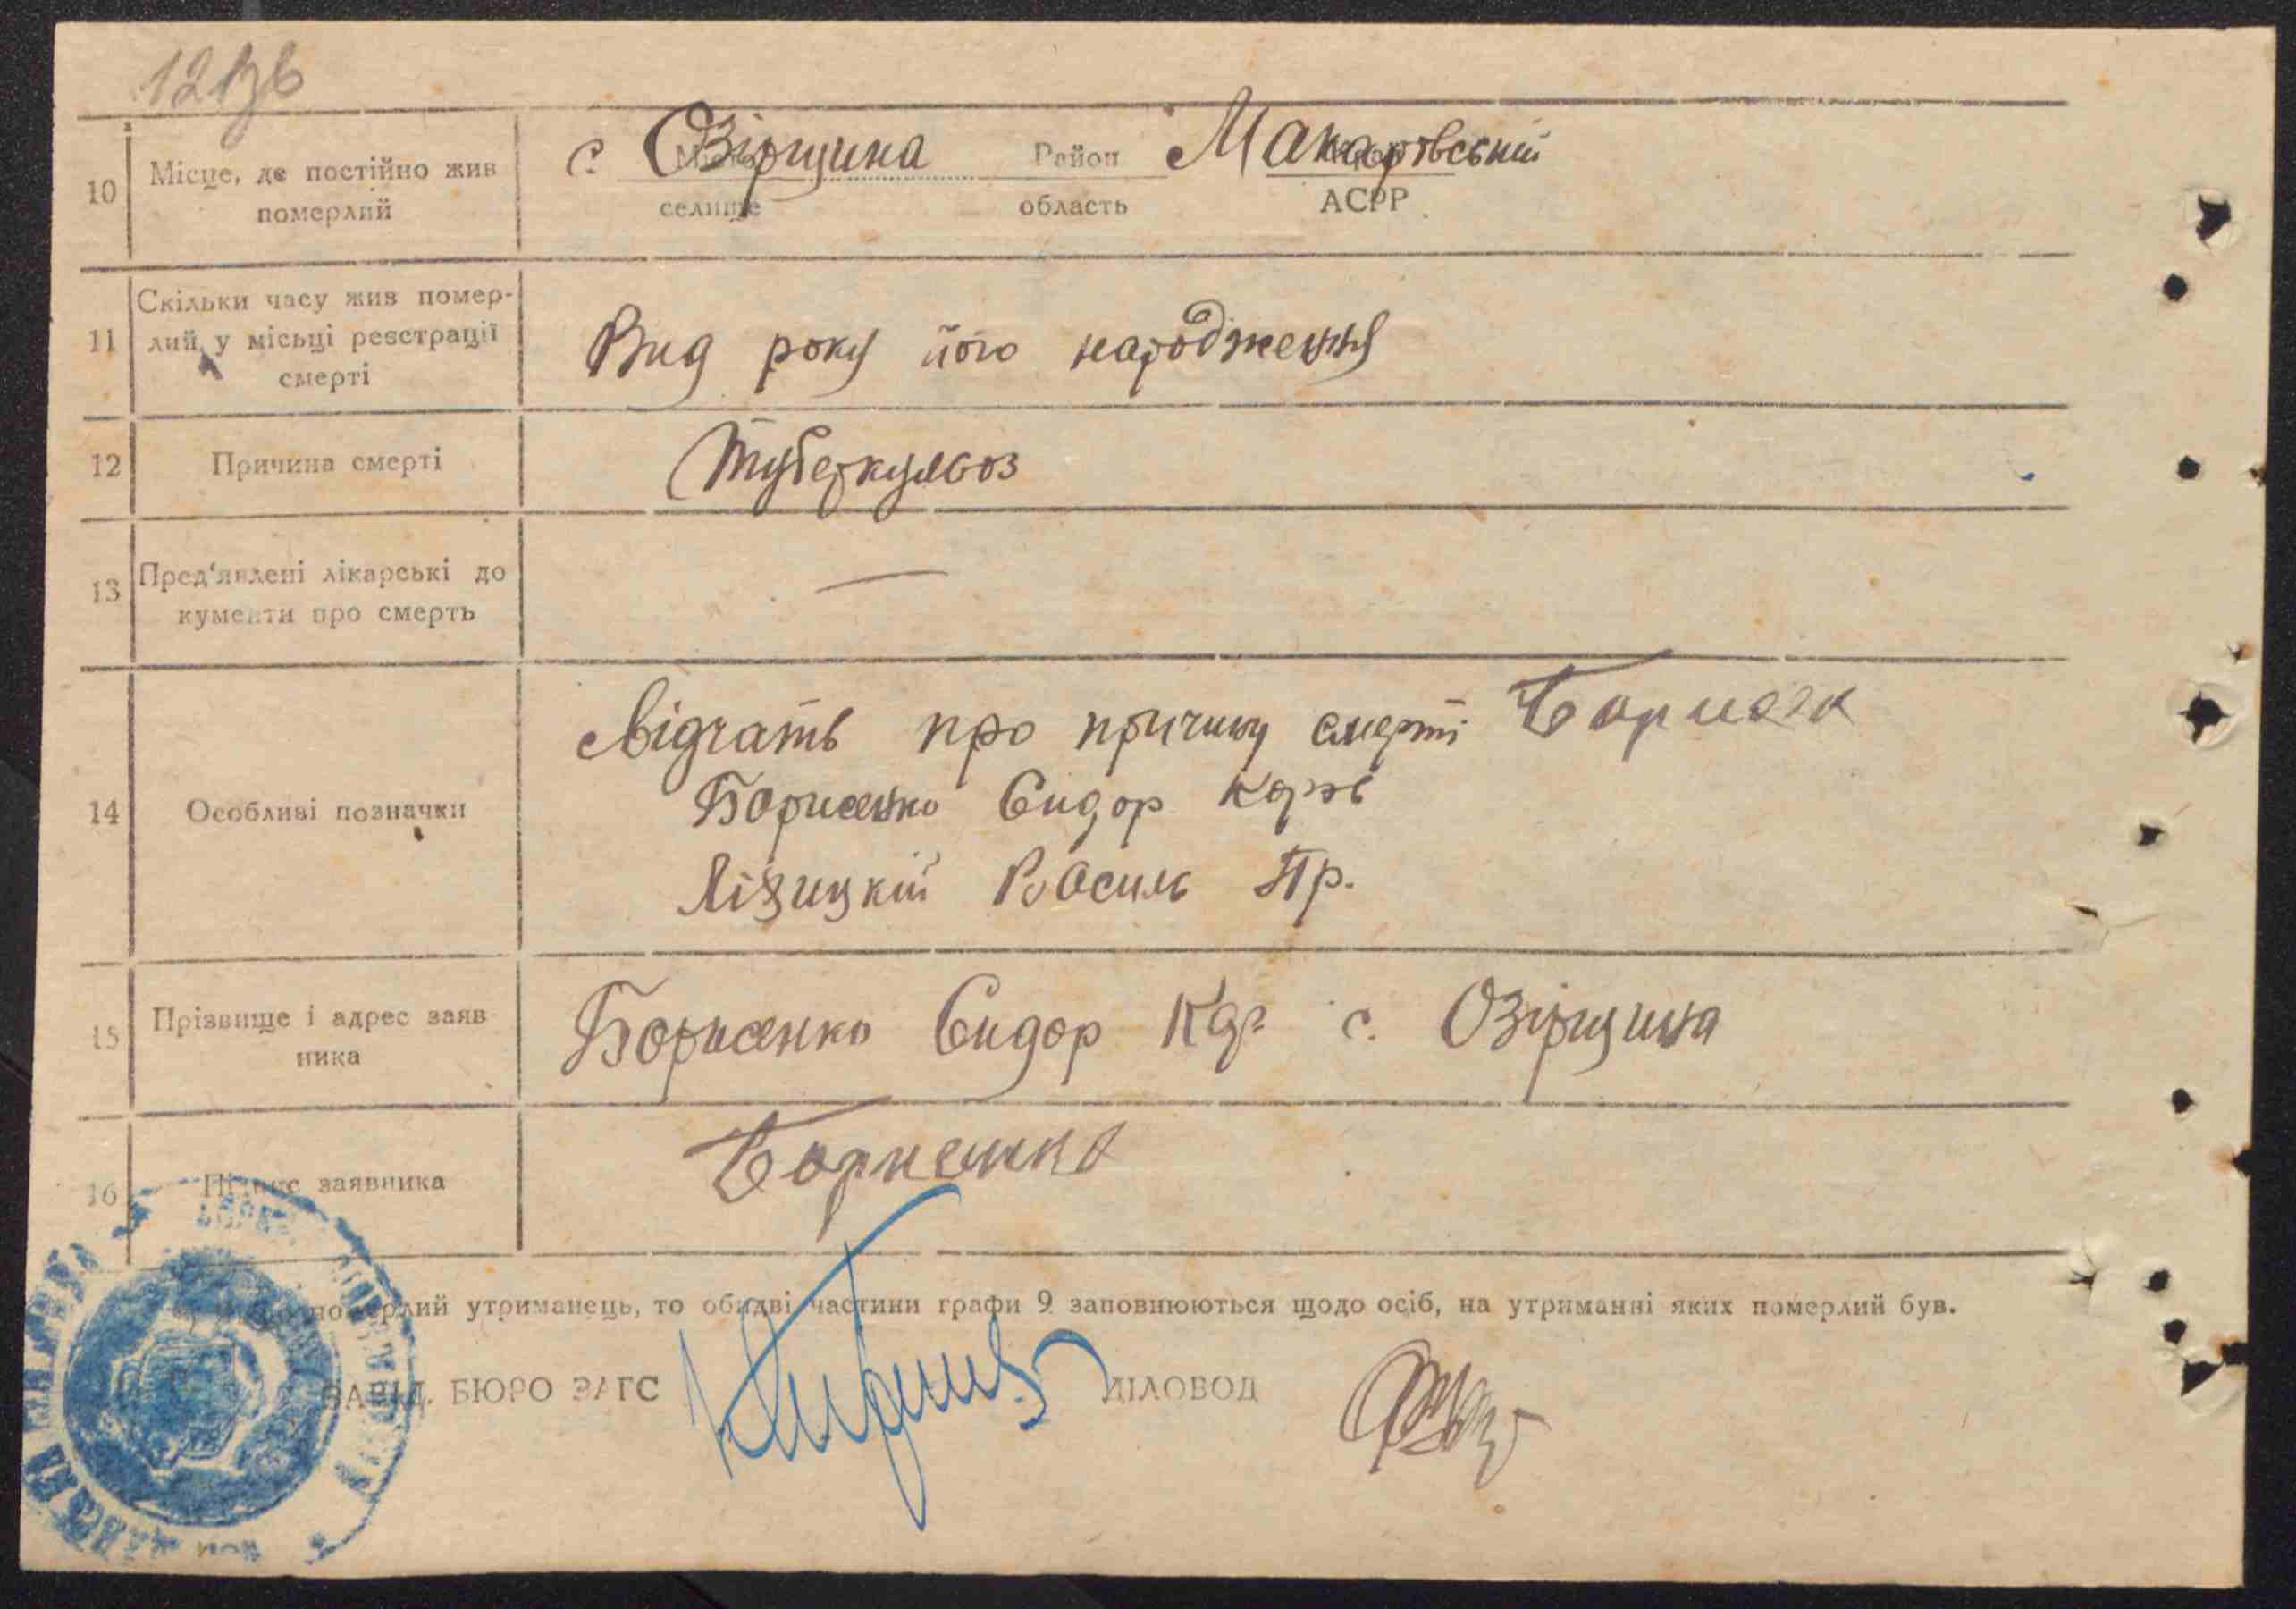 10 Місце, де постійно жив померлий
с. Озірщина Район Макарівський
селище область АСРР
11 Скільки часу жив помер-
лий у місьці реєстрації
смерті
Вид року його народження
12 Причина смерті
Туберкульоз
13 Пред'явлені лікарські до
кументи про смерть
—
14 Особливі позначки
про причину смерті
Борисенко Сидор
Василь Пр.
15 Прізвище і адрес заяв
ника
Борисенко Сидор с. Озірщина
16 Підпис заявника
Борисенко
померлий утриманець, то обидві частини графи 9 заповнюються щодо осіб, на утриманні яких померлий був.
ЗАВІД. БЮРО ЗАГС ДІЛОВОД